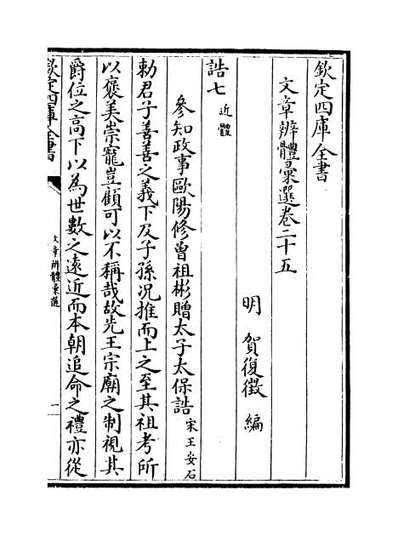 欽定四庫全書
文章辨體彙選卷二十五
明 賀復徵 編
誥七 近體
參知政事歐陽修曾祖彬贈太子太保誥 宋王安石
勅君子善善之義下及子孫況推而上之至其祖考所
以褒美崇寵豈顧可以不稱哉故先王宗廟之制視其
爵位之高下以為世數之遠近而本朝追命之禮亦從
欽定四庫全書
文章辨體彙選
一